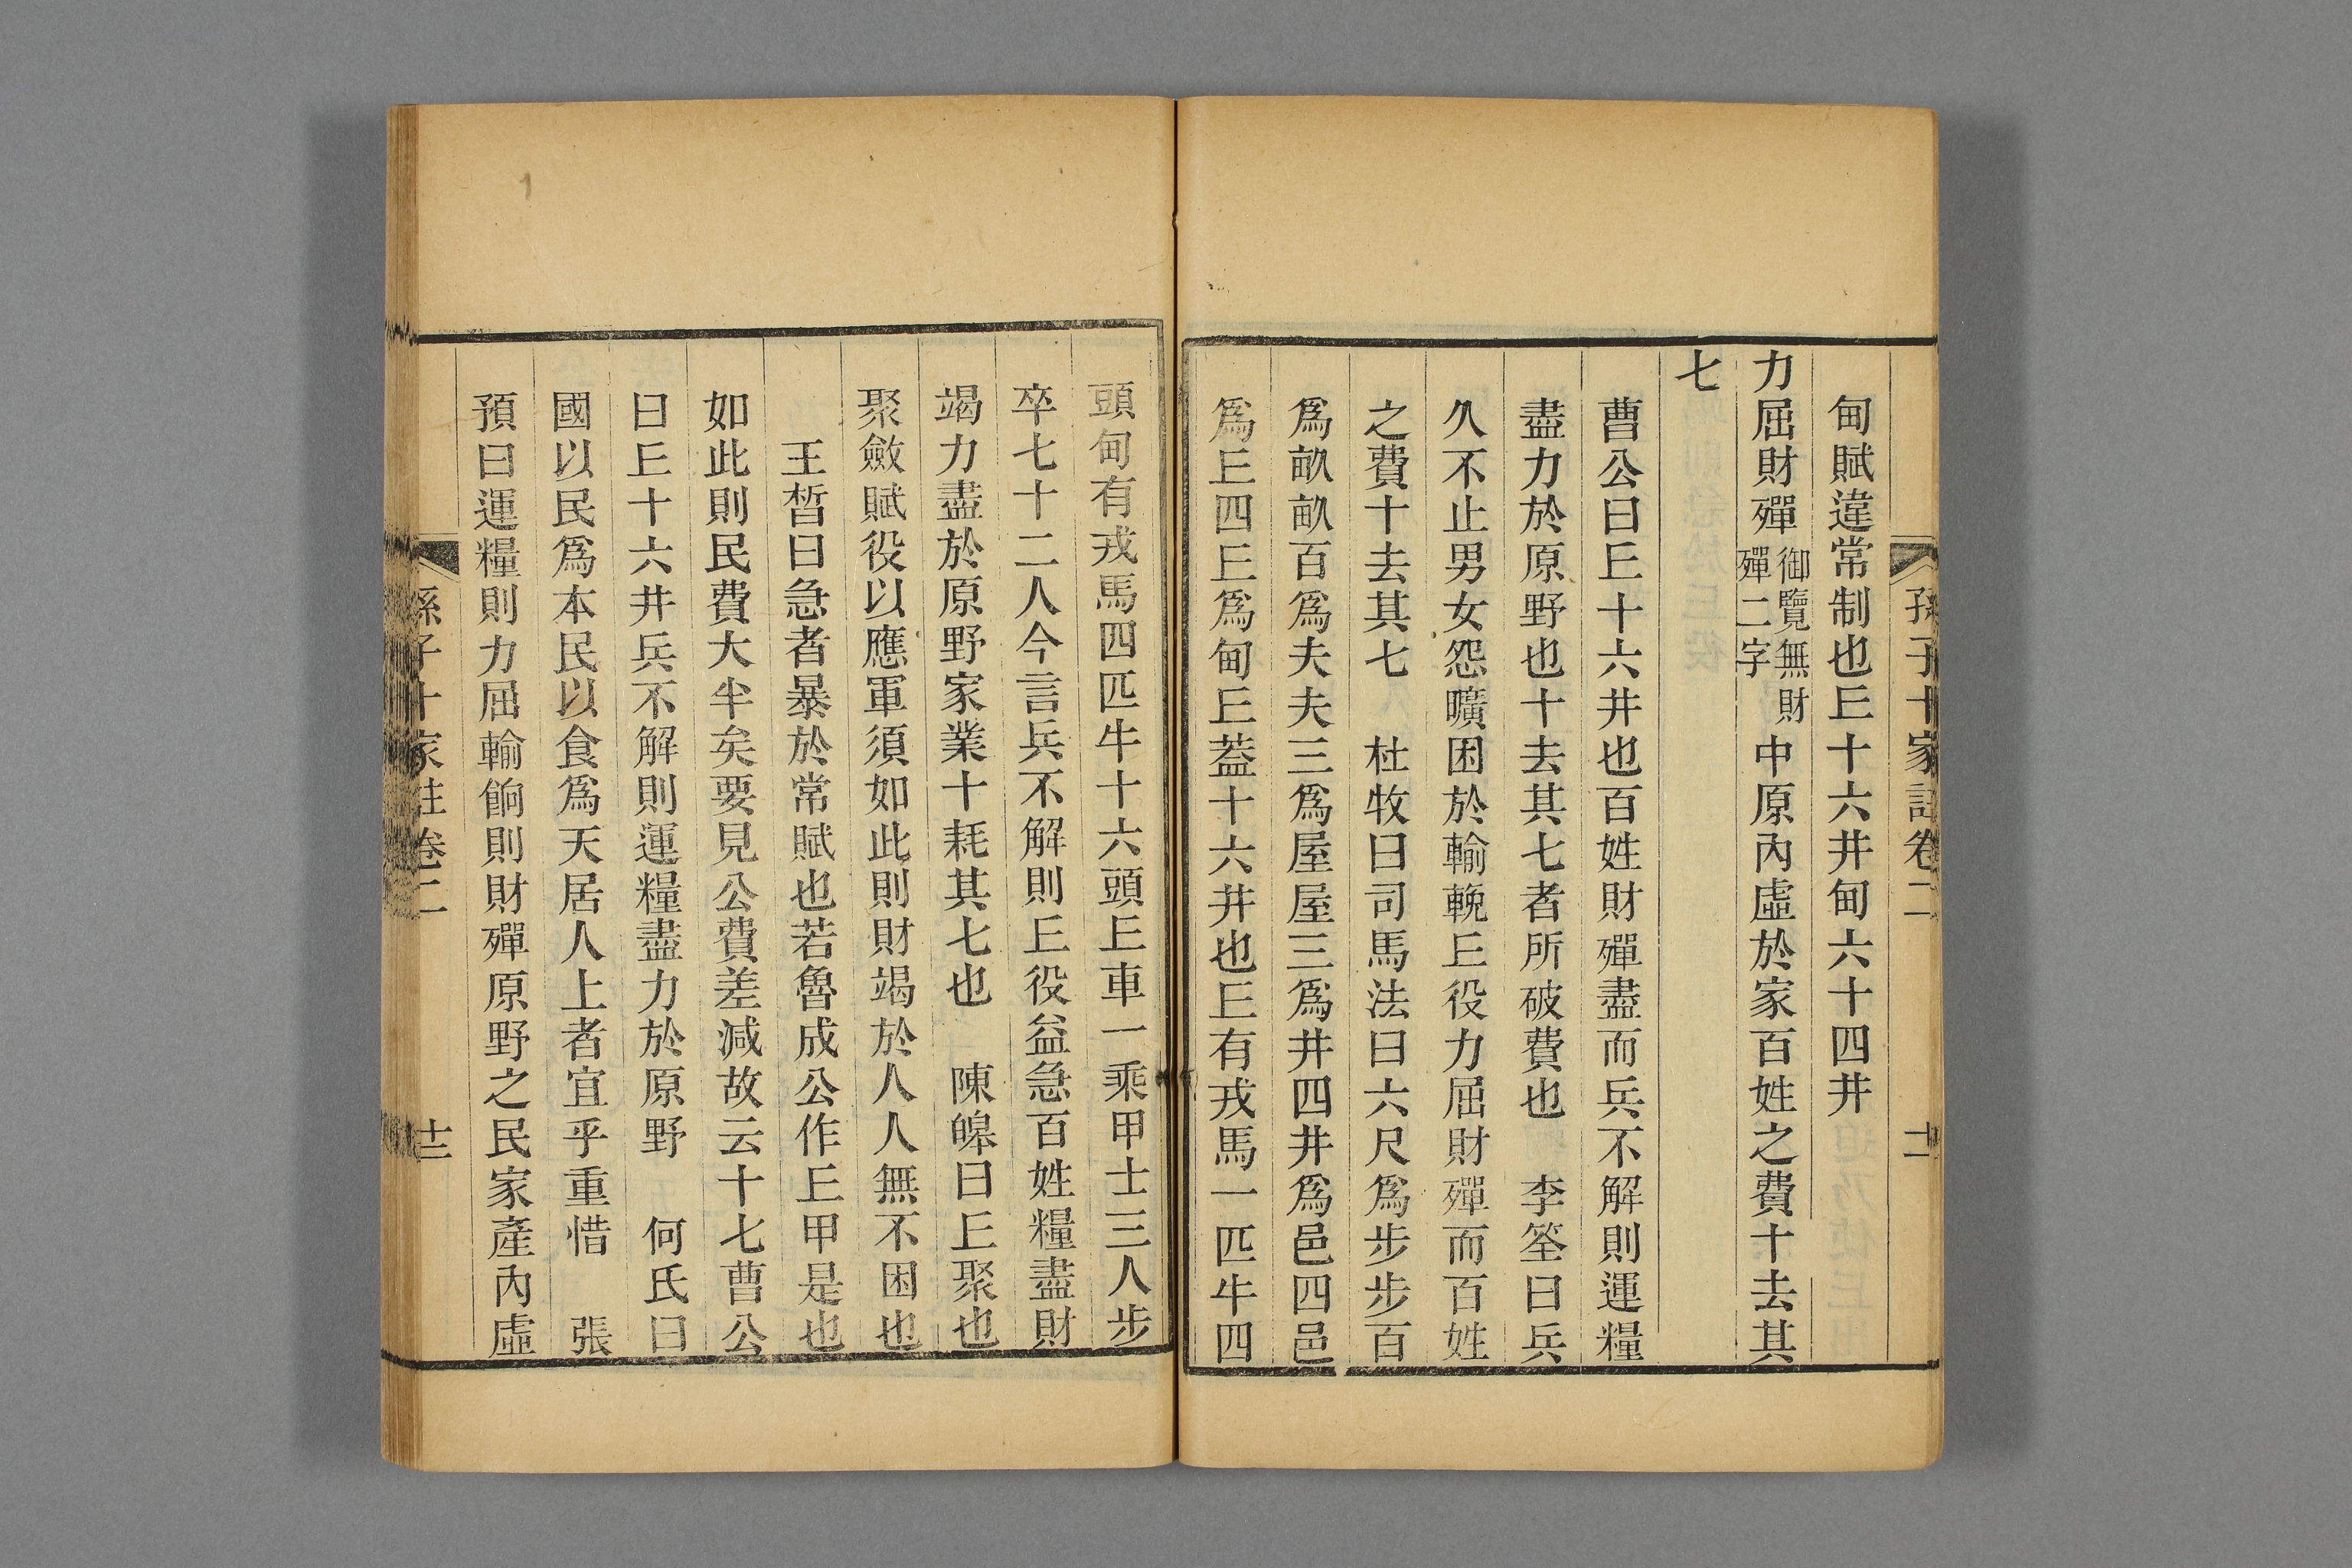 孫子十家註卷二 十二
甸賦違常制也𠀉十六井甸六十四井
力屈財殫御覽無財殫二字中原內虛於家百姓之費十去其
七
曹公曰𠀉十六井也百姓財殫盡而兵不解則運糧
盡力於原野也十去其七者所破費也 李筌曰兵
久不止男女怨曠困於輸輓𠀉役力屈財殫而百姓
之費十去其七 杜牧曰司馬法曰六尺爲步步百
爲畝畝百爲夫夫三爲屋屋三爲井四井爲邑四邑
爲𠀉四𠀉爲甸𠀉蓋十六井也𠀉有戎馬一匹牛四
頭甸有戎馬四匹牛十六頭𠀉車一乘甲士三人步
卒七十二人今言兵不解則𠀉役益急百姓糧盡財
竭力盡於原野家業十耗其七也 陳皞曰𠀉聚也
聚斂賦役以應軍須如此則財竭於人人無不困也
王晳曰急者暴於常賦也若魯成公作𠀉甲是也
如此則民費大半矣要見公費差減故云十七曹公
曰𠀉十六井兵不解則運糧盡力於原野 何氏曰
國以民爲本民以食爲天居人上者宜乎重惜 張
預曰運糧則力屈輸餉則財殫原野之民家產內虛
孫子十家註卷二 十三